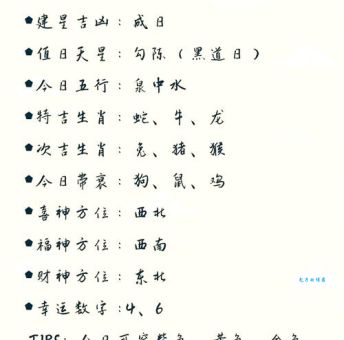 建星吉凶：成日
值日天星：勾陈（黑道日）
今日五行：泉中水
特吉生肖：蛇、牛、龙
次吉生肖：兔、猪、猴
今日带衰：狗、鼠、鸡
喜神方位：西北
福神方位：西南
财神方位：东北
幸运数字：4、6
TIPS：今日可穿